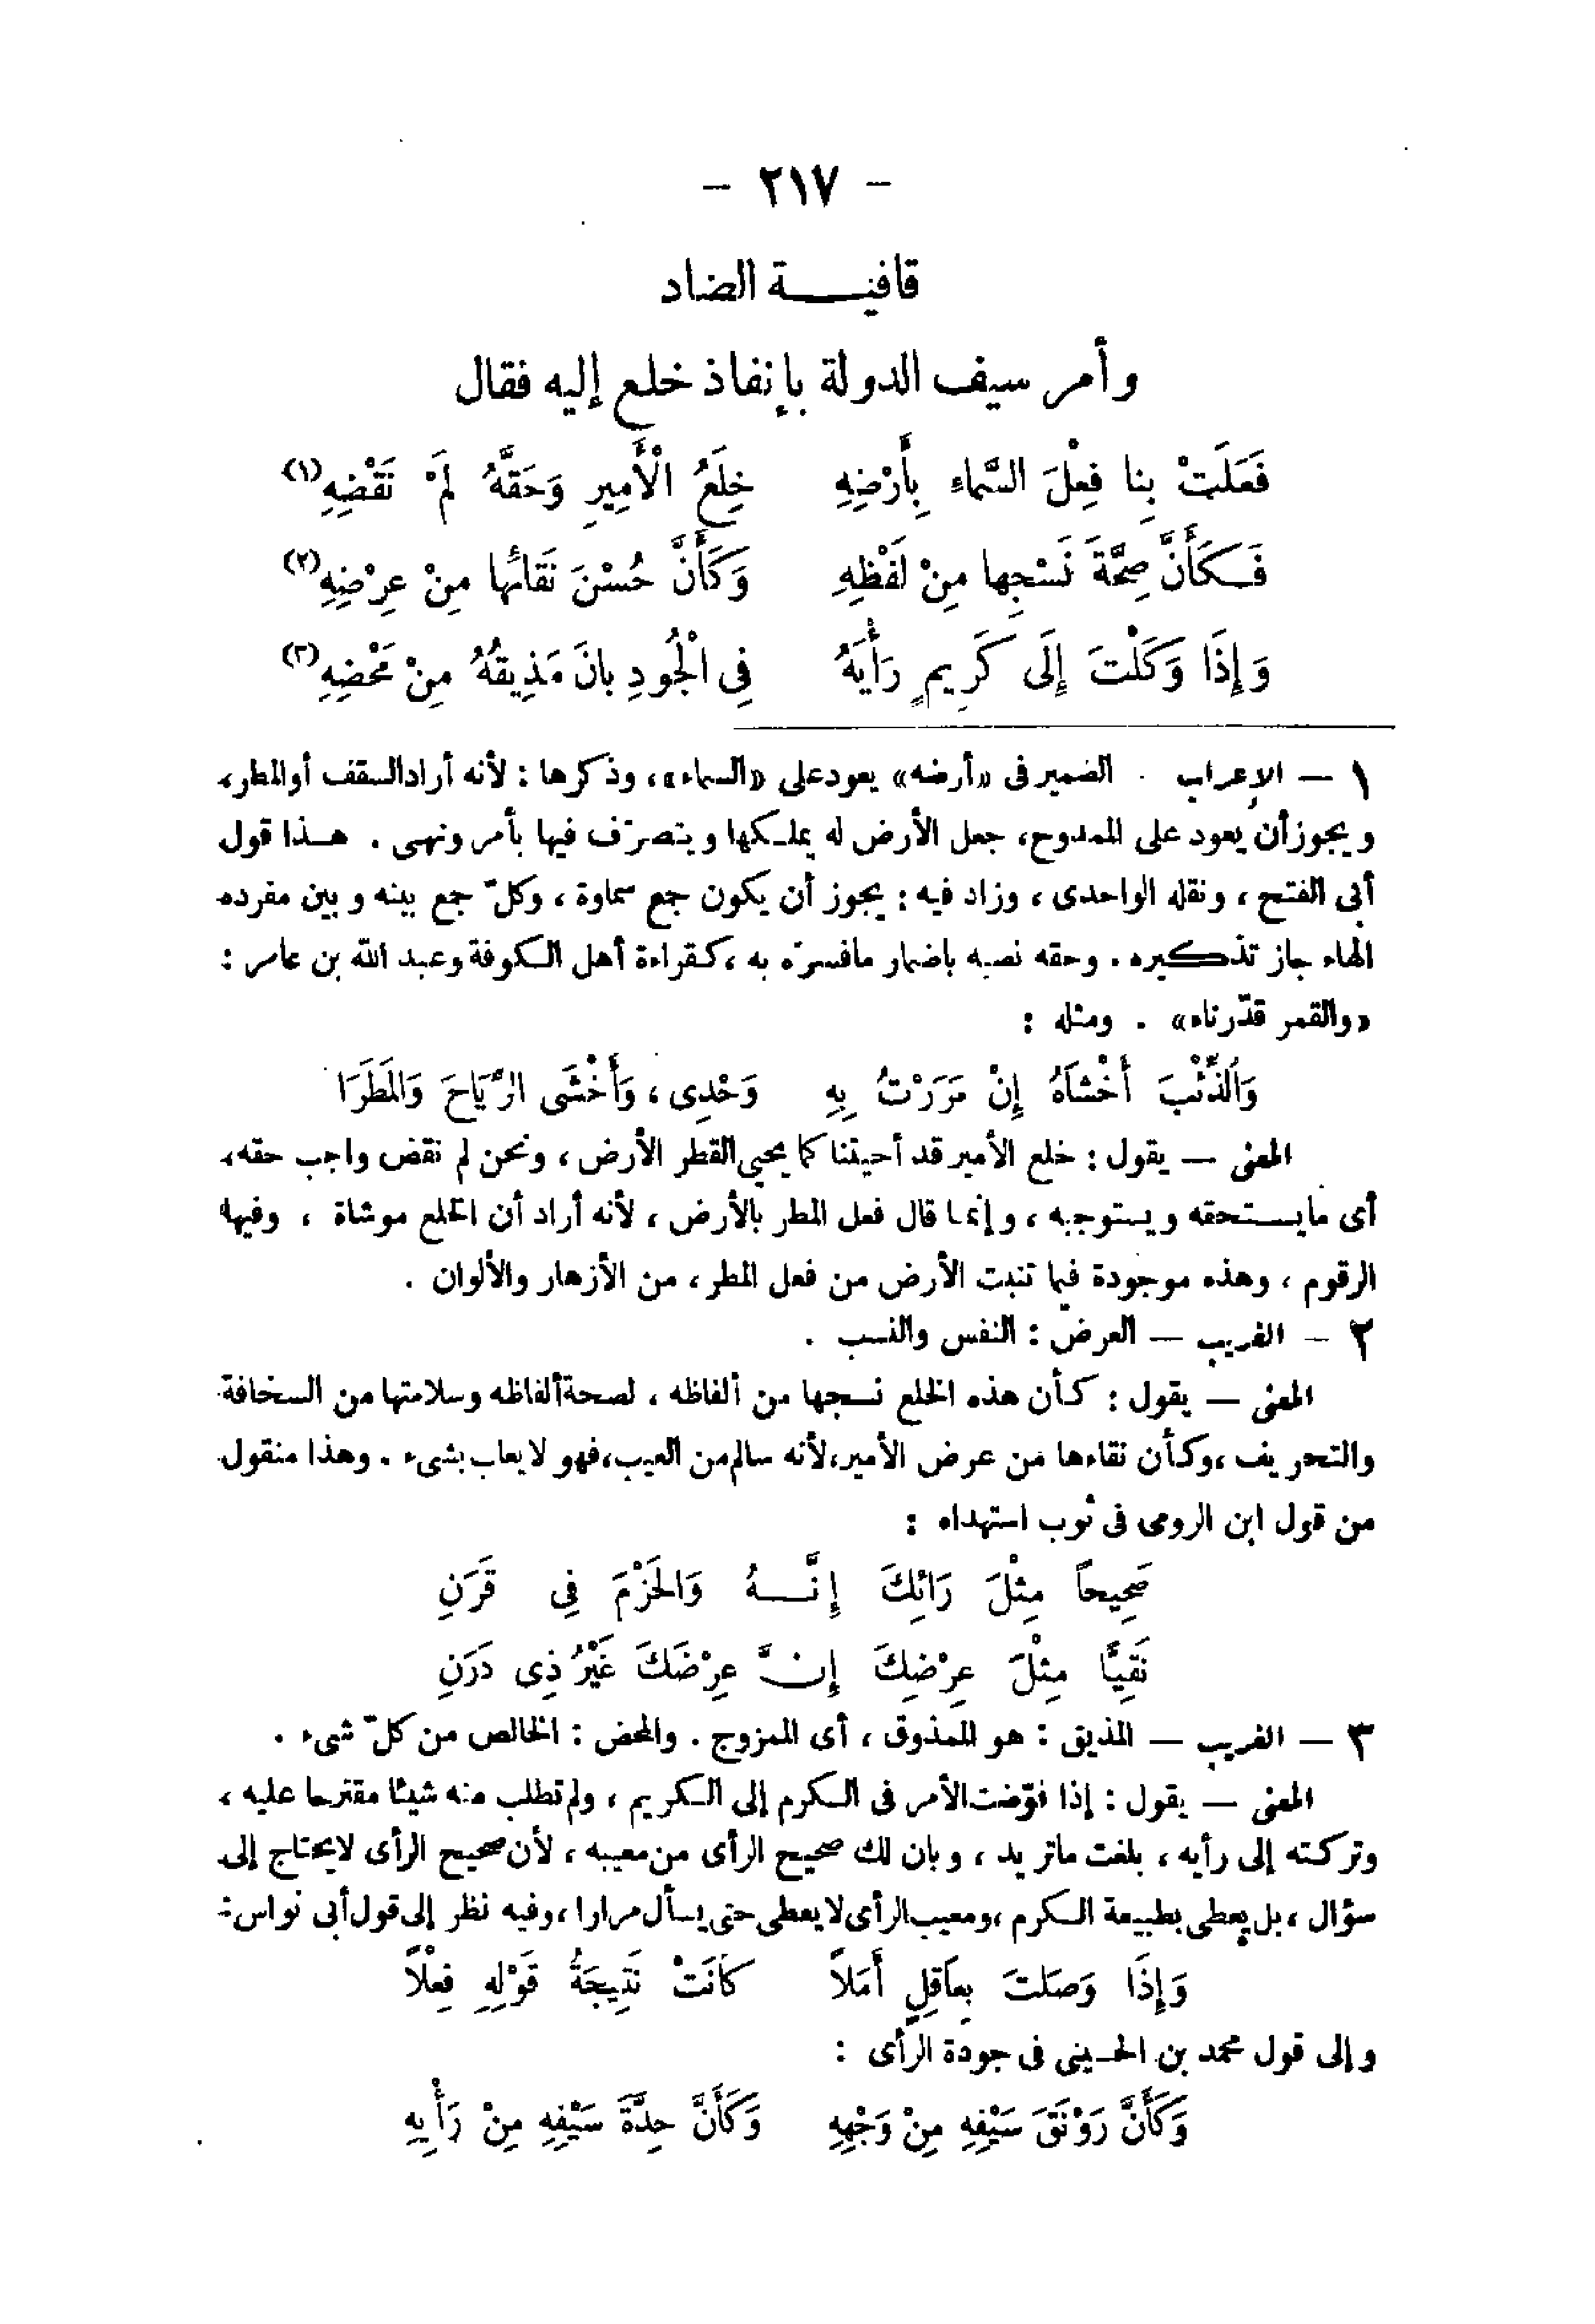 - ٢١٧ -
قافيـــة الضاد
وأمر سيف الدولة بإنفاذ خلع إليه فقال
فَعَلَتْ بِنا فِعْلَ السَّماءِ بِأَرْضِهِ خِلَعُ الْأَمِيرِ وَحَقَّهُ لَمْ نَقْضِهِ (١)
فَـكَأَنَّ صِحَّةَ نَسْجِها مِنْ لَفْظِهِ وَكَأَنَّ حُسْنَ نَقائها مِنْ عِرْضِهِ (٢)
وَإِذَا وَكَلْتَ إِلَى كَرِيمٍ رَأْيَهُ فِى الْجُودِ بانَ مَذِيقُهُ مِنْ مَحْضِهِ (٣)
١ — الإعراب . الضمير فى «أرضه» يعود على «السماء»، وذكرها : لأنه أراد السقف أو المطر،
ويجوز أن يعود على الممدوح، جعل الأرض له يملـكها ويتصرّف فيها بأمر ونهى . هـذا قول
أبى الفتح ، ونقله الواحدى ، وزاد فيه : يجوز أن يكون جمع سماوة ، وكلّ جمع بينه وبين مفرده
الهاء جاز تذكيره . وحقه نصبه باضمار مافسرّه به ، كـقراءة أهل الـكوفة وعبد الله بن عامر :
«والقمر قدّرناه» . ومثله :
وَالذِّئْبَ أَخْشَاهُ إِنْ مَرَرْتُ بِهِ وَحْدِى ، وَأَخْشَى الرِّيَاحَ وَالمَطَرَا
المعنى — يقول : خلع الأمير قد أحيتنا كما يحيى القطر الأرض ، ونحن لم نقض واجب حقه،
أى مايستحقه ويستوجبه ، وإنما قال فعل المطر بالأرض ، لأنه أراد أن الخلع موشاة ، وفيها
الرقوم ، وهذه موجودة فيما تنبت الأرض من فعل المطر ، من الأزهار والألوان .
٢ — الغريب — العرض : النفس والنسب .
المعنى — يقول : كـأن هذه الخلع نسجها من ألفاظه ، لصحة ألفاظه وسلامتها من السخافة
والتحريف ، وكـأن نقاءها من عرض الأمير، لأنه سالم من العيب، فهو لا يعاب بشىء . وهذا منقول
من قول ابن الرومى فى ثوب استهداه :
صَحِيحاً مِثْلَ رَائِكَ إِنَّــهُ وَالحَزْمَ فِى قَرَنِ
نَقِيًّا مِثْلَ عِرْضِكَ إِنَّ عِرْضَكَ غَيْرُ ذِى دَرَنِ
٣ — الغريب — المذيق : هو الممذوق ، أى الممزوج . والمحض : الخالص من كلّ شىء .
المعنى — يقول : إذا فوّضت الأمر فى الـكرم إلى الـكريم ، ولم تطلب منه شيئا مقترحا عليه ،
وتركته إلى رأيه ، بلغت ماتريد ، وبان لك صحيح الرأى من معيبه ، لأن صحيح الرأى لا يحتاج إلى
سؤال ، بل يعطى بطبيعة الـكرم ، ومعيب الرأى لا يعطى حتى يسأل مرارا ، وفيه نظر إلى قول أبى نواس :
وَإِذَا وَصَلتَ بِعاَقِلٍ أَمَلاً كاَنَتْ نَتِيجَةُ قَوْلِهِ فِعْلاً
وإلى قول محمد بن الحسينى فى جودة الرأى :
وَكَأَنَّ رَوْنَقَ سَيْفِهِ مِنْ وَجْهِهِ وَكَأَنَّ حِدَّةَ سَيْفِهِ مِنْ رَأْيِهِ